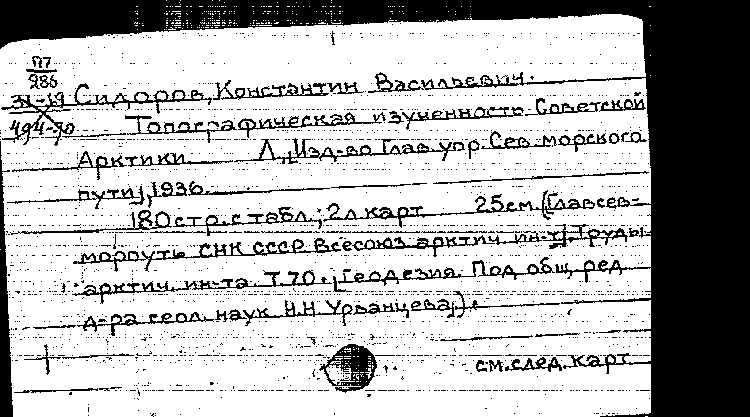 П7
286
31-19
494-70
Сидоров, Константин Васильевич.
Топографическая изученность Советской
Арктики Л., [Изд-во Глав. упр. Сев. морского
пути], 1936.
180 стр. с табл.; 2 л. карт. 25см. (Главсев-
морпуть СНК СССР. Всесоюз. арктич. ин-т]. Труды
арктич. ин-та. Т. 70. [Геодезия. Под общ. ред.
д-ра геол. наук Н.Н. Урванцева]).
см. след. карт.